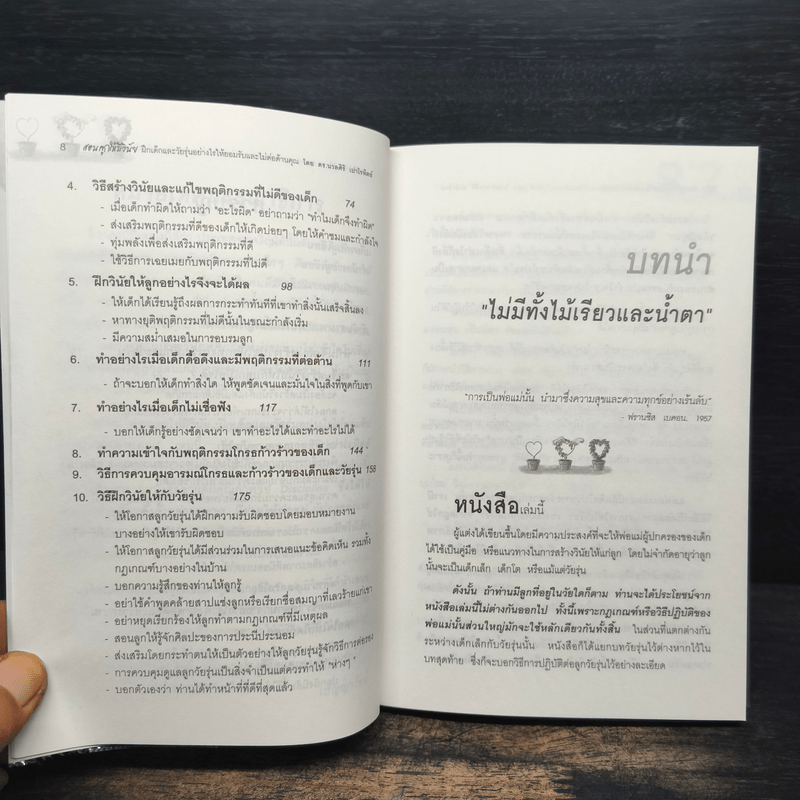 8 สอนลูกให้มีวินัย ฝึกเด็กและวัยรุ่นอย่างไรให้ยอมรับและไม่ต่อต้านคุณ โดย ดร.นวลศิริ เปาโรหิตย์
4. วิธีสร้างวินัยและแก้ไขพฤติกรรมที่ไม่ดีของเด็ก 74
- เมื่อเด็กทำผิดให้ถามว่า "อะไรผิด" อย่าถามว่า "ทำไมเด็กจึงทำผิด"
- ส่งเสริมพฤติกรรมที่ดีของเด็กให้เกิดบ่อยๆ โดยให้คำชมและกำลังใจ
- ทุ่มพลังเพื่อส่งเสริมพฤติกรรมที่ดี
- ใช้วิธีการเฉยเมยกับพฤติกรรมที่ไม่ดี
5. ฝึกวินัยให้ลูกอย่างไรจึงจะได้ผล 98
- ให้เด็กได้เรียนรู้ถึงผลการกระทำทันทีที่เขาทำสิ่งนั้นเสร็จสิ้นลง
- หาทางยุติพฤติกรรมที่ไม่ดีนั้นในขณะกำลังเริ่ม
- มีความสม่ำเสมอในการอบรมลูก
6. ทำอย่างไรเมื่อเด็กดื้อดึงและมีพฤติกรรมที่ต่อต้าน 111
- ถ้าจะบอกให้เด็กทำสิ่งใด ให้พูดชัดเจนและมั่นใจในสิ่งที่พูดกับเขา
7. ทำอย่างไรเมื่อเด็กไม่เชื่อฟัง 117
- บอกให้เด็กรู้อย่างชัดเจนว่า เขาทำอะไรได้และทำอะไรไม่ได้
8. ทำความเข้าใจกับพฤติกรรมโกรธก้าวร้าวของเด็ก 144
9. วิธีการควบคุมอารมณ์โกรธและก้าวร้าวของเด็กและวัยรุ่น 158
10. วิธีฝึกวินัยให้กับวัยรุ่น 175
- ให้โอกาสลูกวัยรุ่นได้ฝึกความรับผิดชอบโดยมอบหมายงาน
บางอย่างให้เขารับผิดชอบ
- ให้โอกาสลูกวัยรุ่นได้มีส่วนร่วมในการเสนอแนะข้อคิดเห็น รวมทั้ง
กฎเกณฑ์บางอย่างในบ้าน
- บอกความรู้สึกของท่านให้ลูกรู้
- อย่าใช้คำพูดคล้ายสาปแช่งลูกหรือเรียกชื่อสมญาที่เลวร้ายแก่เขา
- อย่าหยุดเรียกร้องให้ลูกทำตามกฎเกณฑ์ที่มีเหตุผล
- สอนลูกให้รู้จักศิลปะของการประนีประนอม
- ส่งเสริมโดยกระทำตนให้เป็นตัวอย่างให้ลูกวัยรุ่นรู้จักวิธีการต่อรอง
- การควบคุมดูแลลูกวัยรุ่นเป็นสิ่งจำเป็นแต่ควรทำให้ "ห่างๆ"
- บอกตัวเองว่า ท่านได้ทำหน้าที่ที่ดีที่สุดแล้ว
บทนำ
"ไม่มีทั้งไม้เรียวและน้ำตา"
"การเป็นพ่อแม่นั้น นำมาซึ่งความสุขและความทุกข์อย่างเร้นลับ"
- ฟรานซิส เบคอน. 1957
หนังสือเล่มนี้
ผู้แต่งได้เขียนขึ้นโดยมีความประสงค์ที่จะให้พ่อแม่ผู้ปกครองของเด็ก
ได้ใช้เป็นคู่มือ หรือแนวทางในการสร้างวินัยให้แก่ลูก โดยไม่จำกัดอายุว่าลูก
นั้นจะเป็นเด็กเล็ก เด็กโต หรือแม้แต่วัยรุ่น
ดังนั้น ถ้าท่านมีลูกที่อยู่ในวัยใดก็ตาม ท่านจะได้ประโยชน์จาก
หนังสือเล่มนี้ไม่ต่างกันออกไป ทั้งนี้เพราะกฎเกณฑ์หรือวิธีปฏิบัติของ
พ่อแม่นั้นส่วนใหญ่มักจะใช้หลักเดียวกันทั้งสิ้น ในส่วนที่แตกต่างกัน
ระหว่างเด็กเล็กกับวัยรุ่นนั้น หนังสือก็ได้แยกบทวัยรุ่นไว้ต่างหากไว้ใน
บทสุดท้าย ซึ่งก็จะบอกวิธีการปฏิบัติต่อลูกวัยรุ่นไว้อย่างละเอียด